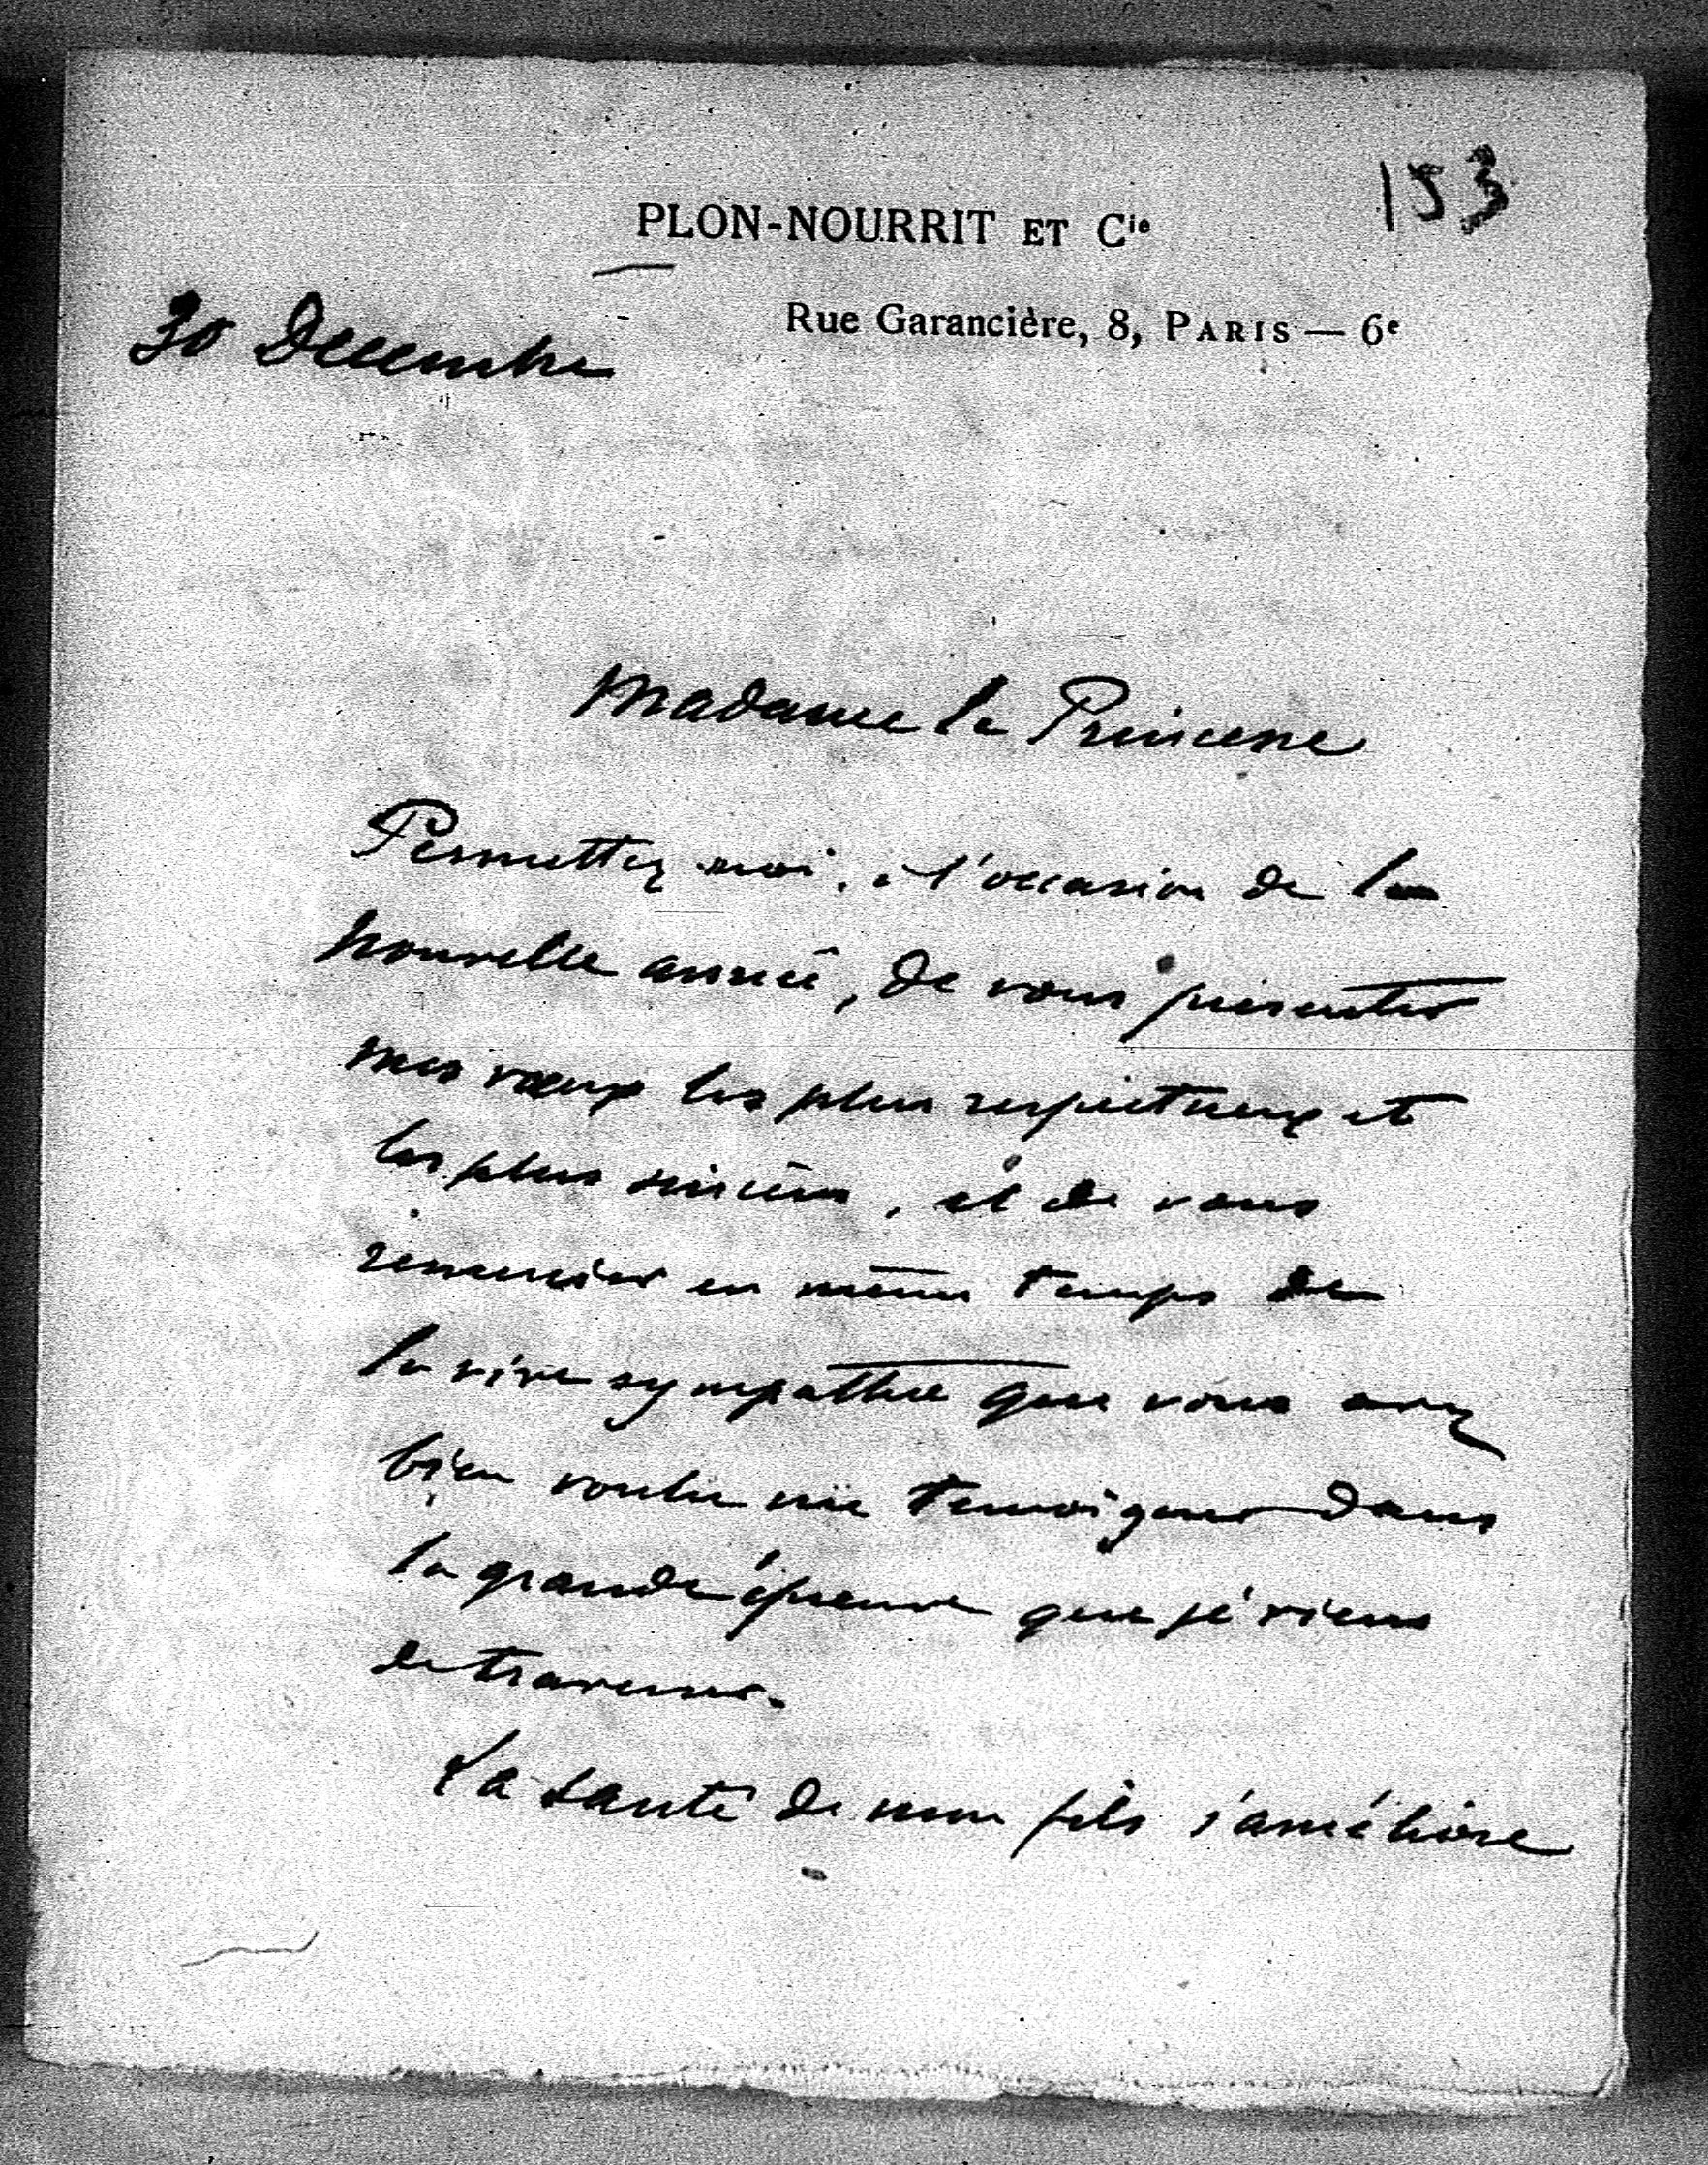 153
PLON-NOURRIT ET Cie
Rue Garancière, 8, PARIS — 6e
30 Decembre
Madame la Princesse
Permettez moi, à l'occasion de la
nouvelle année, de vous présenter
mes vœux les plus respectueux et
les plus sincères, et de vous
remercier en même temps de
la vive sympathie que vous avez
bien voulu me temoigner dans
la grande épreuve que je viens
de traverser.
La santé de mon fils s'améliore